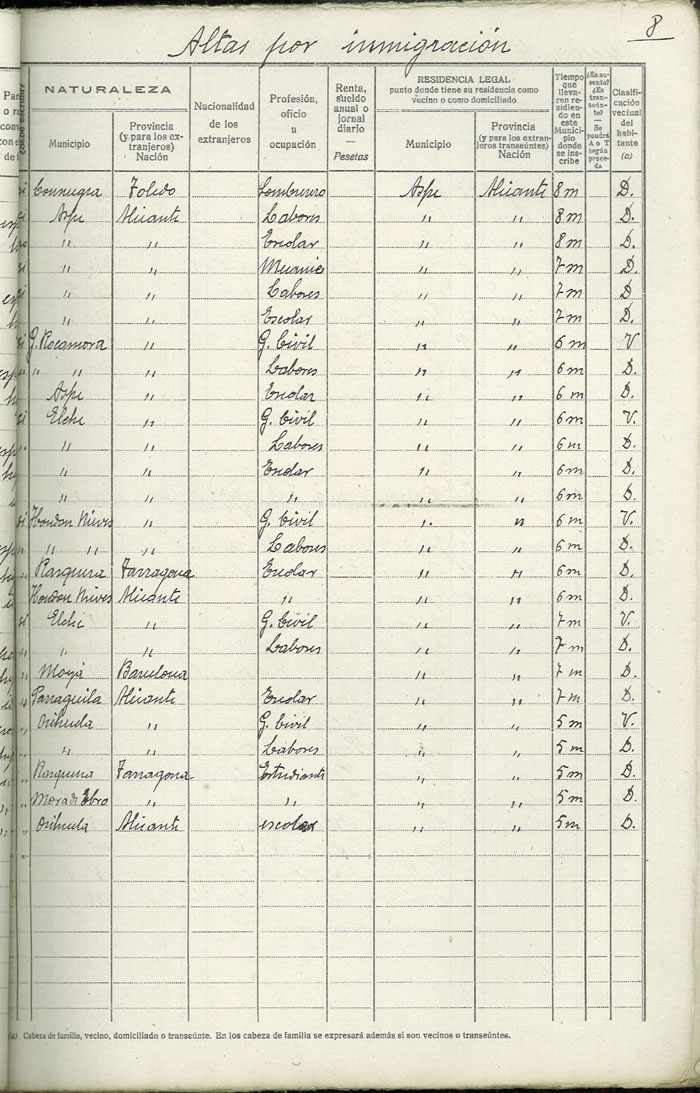 8
Altas por inmigración
NATURALEZA
Municipio
Provincia (y para los extranjeros) Nación
Nacionalidad de los extranjeros
Profesión, oficio u ocupación
Renta, sueldo anual o jornal diario — Pesetas
RESIDENCIA LEGAL
punto donde tiene su residencia como vecino o como domiciliado
Municipio
Provincia (y para los extranjeros transeúntes) Nación
Tiempo que llevaren residiendo en este Municipio donde se inscribe
¿Es ausente? ¿Es transeúnte? — Se pondrá A o T según proceda
Clasificación vecinal del habitante (a)
Toledo Aspe Alicante 8 m D.
Aspe Alicante Labores " " 8 m D.
" " Escolar " " 8 m D.
" " " " 7 m D.
" " Labores " " 7 m D
" " Escolar " " 7 m D.
G. Rocamora " G. Civil " " 6 m V
" " " Labores " " 6 m D.
Aspe " Escolar " " 6 m D.
Elche " G. Civil " " 6 m V.
" " Labores " " 6 m D.
" " Escolar " " 6 m D.
" " " " " 6 m D.
Hondon Nieves " G. Civil " " 6 m V.
" " " Labores " " 6 m D.
Rasquera Tarragona Escolar " " 6 m D.
Hondon Nieves Alicante " " " 6 m D.
Elche " G. Civil " " 7 m V.
" " Labores " " 7 m D.
Moyá Barcelona " " 7 m D.
Alicante Escolar " " 7 m D.
Orihuela " G. Civil " " 5 m V.
" " Labores " " 5 m D.
Rasquera Tarragona Estudiante " " 5 m D.
Ebro " " " " 5 m D.
Orihuela Alicante escolar " " 5 m D.
(a) Cabeza de familia, vecino, domiciliado o transeúnte. En los cabeza de familia se expresará además si son vecinos o transeúntes.